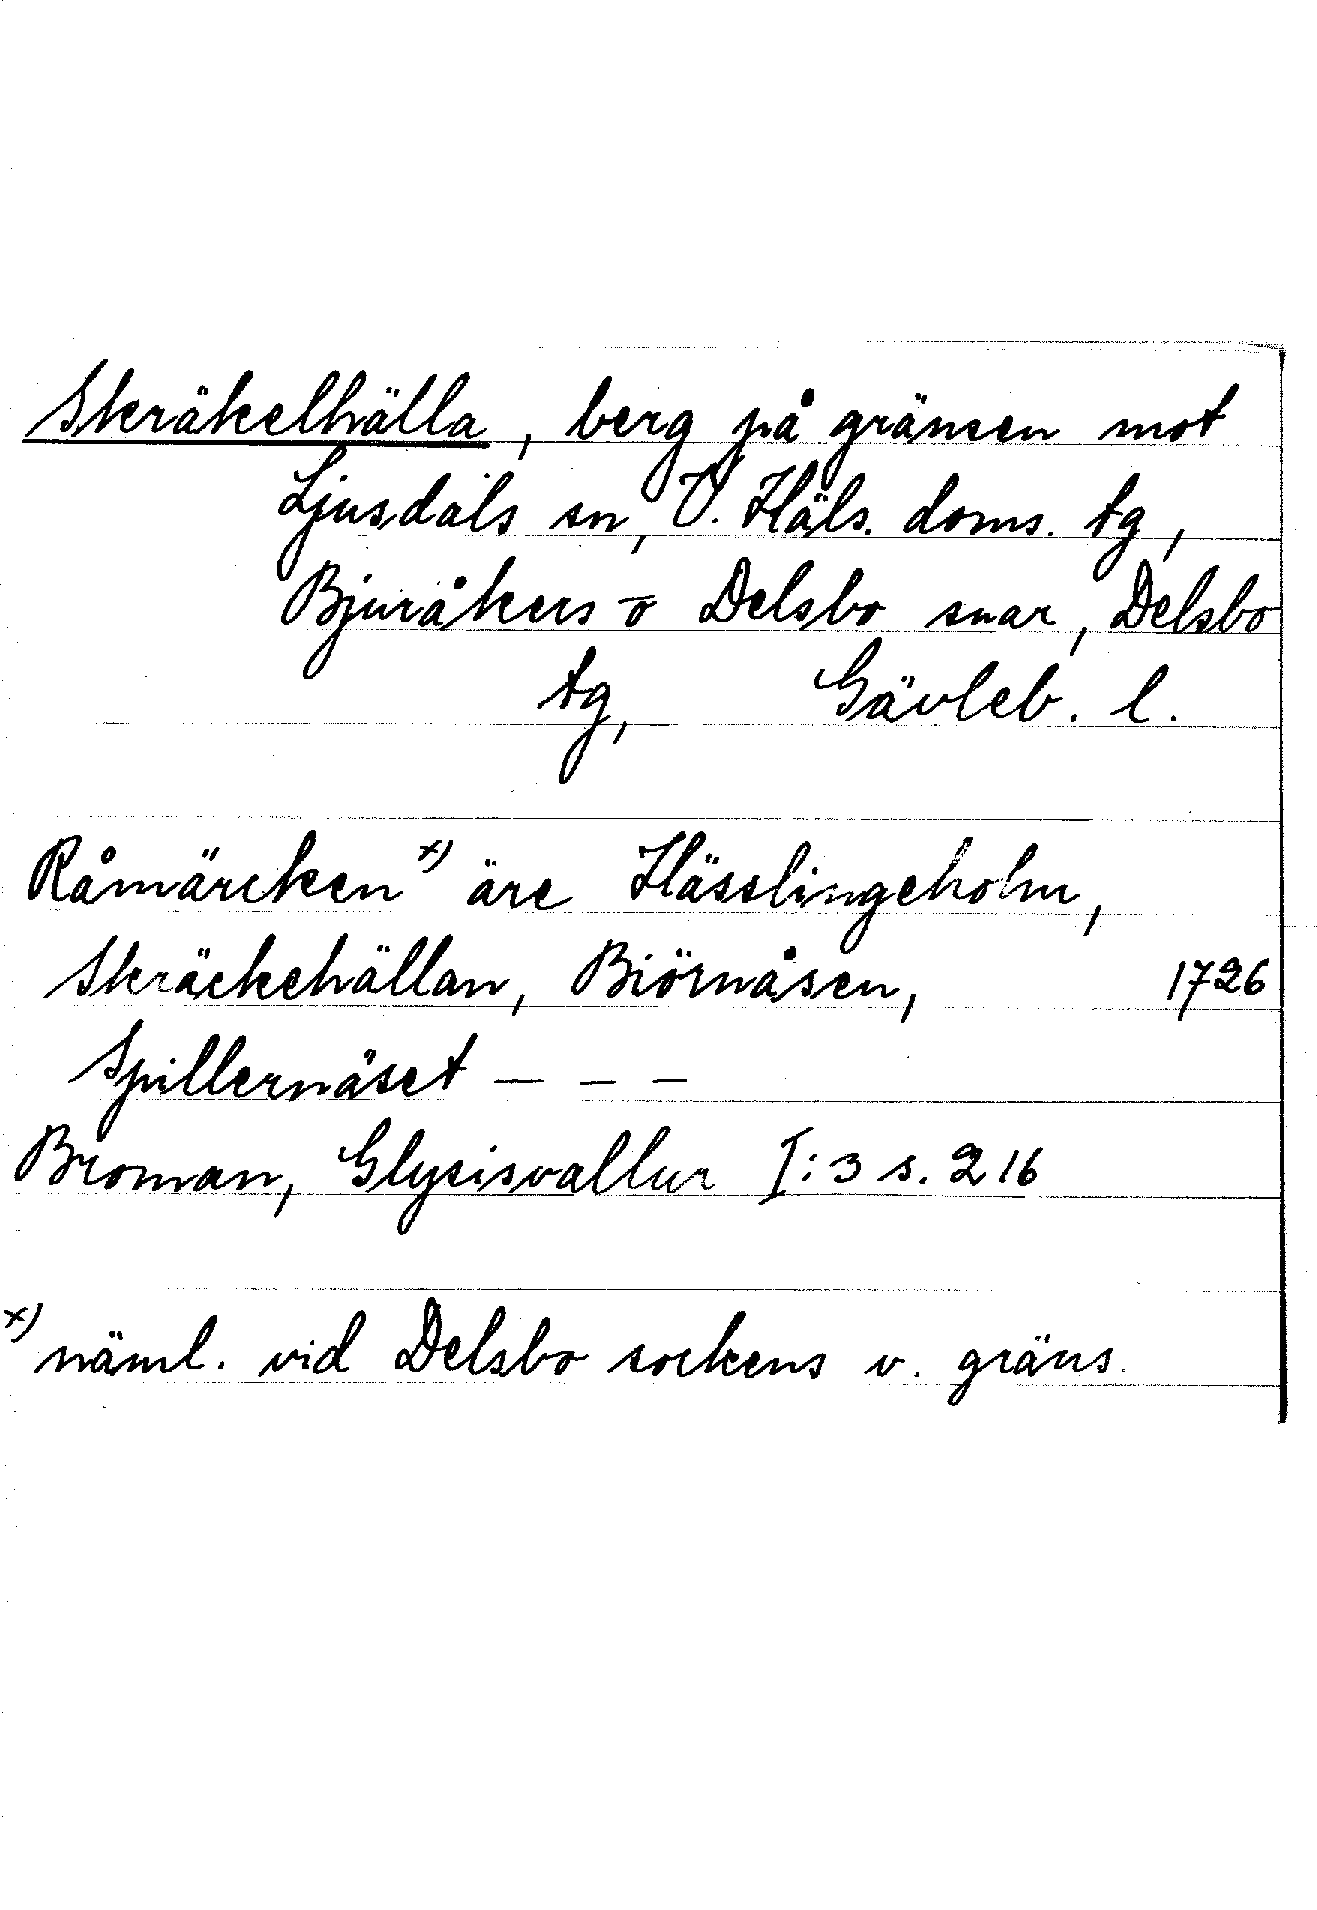 Skräkelhälla, berg på gränsen mot
Ljusdals sn, V. Häls. doms. tg,
Bjuråkers o Delsbo snar, Delsbo
tg, Gävleb. l.
Råmärcken x) äre Hässlingeholm,
Skräckehällan, Biörnåsen, 1726
Spillernäset — — —
Broman, Glysisvallur I:3 s. 216
x) näml. vid Delsbo sockens v. gräns.